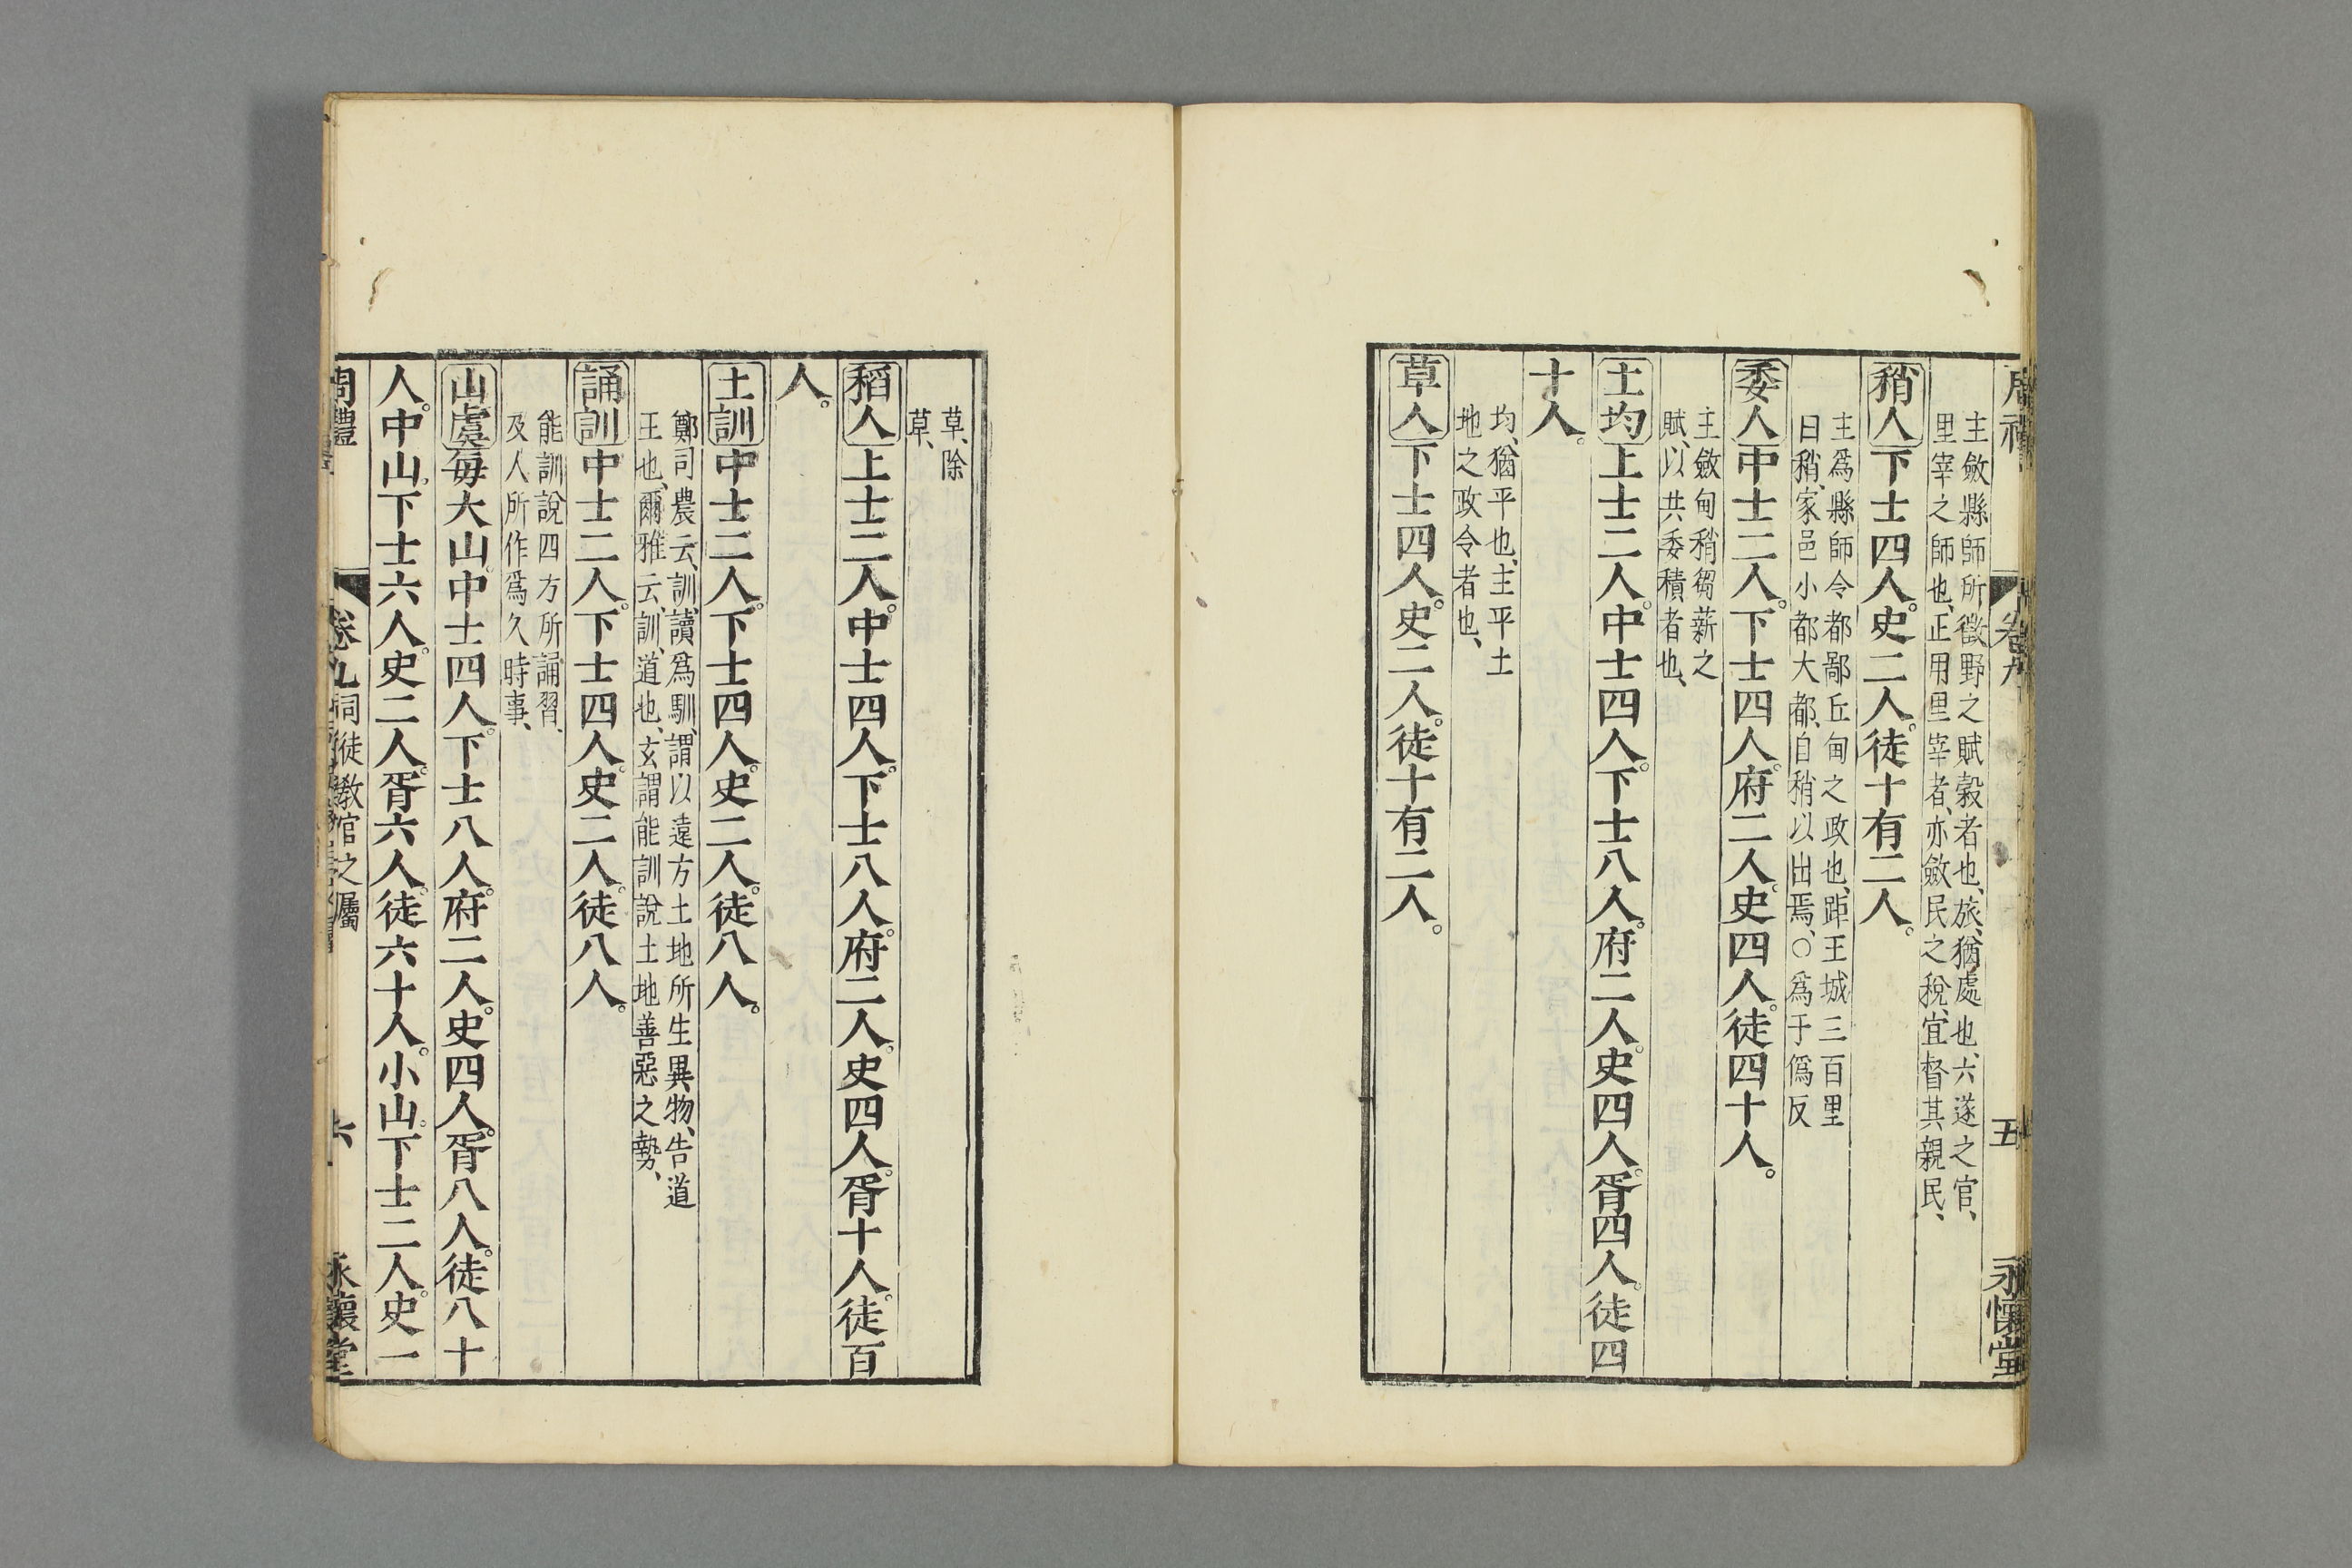 周禮
卷九
五
永懷堂
主斂縣師所徵野之賦穀者也、旅、猶處也、六遂之官、
里宰之師也、正用里宰者、亦斂民之稅、宜督其親民、
稍人下士四人。史二人。徒十有二人。
主爲縣師令都鄙丘甸之政也、距王城三百里
曰稍、家邑小都大都、自稍以出焉、○爲于僞反
委人中士二人。下士四人。府二人。史四人。徒四十人。
主斂甸稍芻薪之
賦、以共委積者也、
土均上士二人。中士四人。下士八人。府二人。史四人。胥四人。徒四
十人。
均、猶平也、主平土
地之政令者也、
草人下士四人。史二人。徒十有二人。
草、除
草、
稻人上士二人。中士四人。下士八人。府二人。史四人。胥十人。徒百
人。
土訓中士二人。下士四人。史二人。徒八人。
鄭司農云、訓、讀爲馴、謂以遠方土地所生異物、告道
王也、爾雅云、訓、道也、玄謂能訓說土地善惡之勢、
誦訓中士二人。下士四人。史二人。徒八人。
能訓說四方所誦習、
及人所作爲久時事、
山虞每大山。中士四人。下士八人。府二人。史四人。胥八人。徒八十
人。中山。下士六人。史二人。胥六人。徒六十人。小山。下士二人。史一
周禮
卷九
司徒教官之屬
六
永懷堂